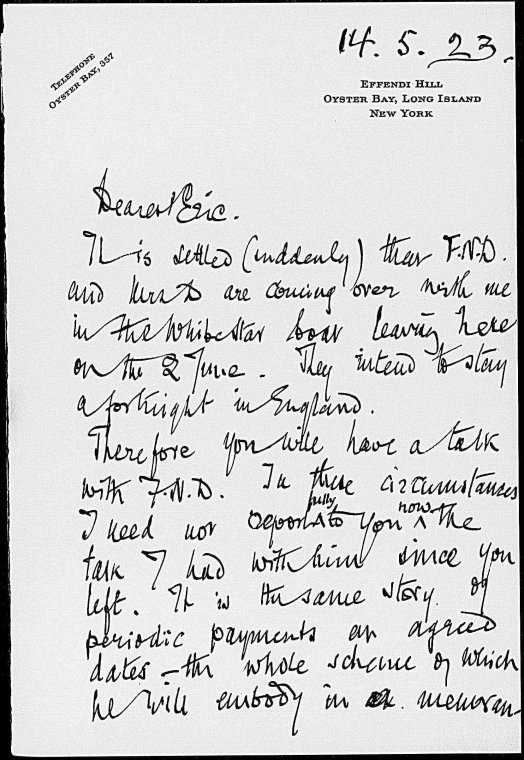 14. 5. 23.
TELEPHONE
OYSTER BAY, 357
EFFENDI HILL
OYSTER BAY, LONG ISLAND
NEW YORK
Dearest Eric.
It is settled (suddenly) that F.N.D.
and Mrs D are coming over with me
in the White Star boat leaving here
on the 2 June. They intend to stay
a fortnight in England.
Therefore you will have a talk
with F.N.D. In these circumstances
I need not report fully to you now the
talk I had with him since you
left. It is the same story of
periodic payments on agreed
dates – the whole scheme of which
he will embody in a memoran-